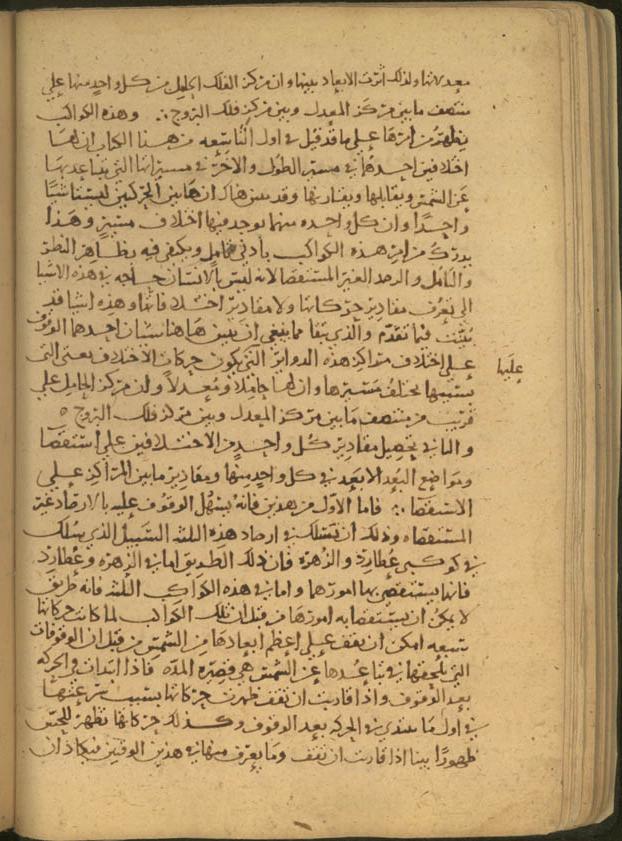 ولذلك اثرت الابعاد بينها وان مركز الفلك الحامل من كل واحد منها على
منتصف ما بين مركز المعدل وبين مركز فلك البروج ؞ وهذه الكواكب
يظهر من امرها على ما قد قيل في اول التاسعه من هذا الكتاب ان لها
اختلافين احدهما في مسير الطول والاخر في مسيراتها التي تباعد بها
عن الشمس وتقابلها وتقاربها وقد تبين هناك ان هاتين الحركتين ليستا شيا
واحدا وان كل واحده منهما يوجد فيها اختلاف متميز وهذا
يدرك من امر هذه الكواكب بادنى تامل ويكتفى فيه بظاهر النظر
والتامل والرصد الغير المستقصا لانه ليس بالانسان حاجه في هذه الاشيا
الى تعرف مقادير حركاتها ولا مقادير اختلافاتها وهذه اشيا قد
بينت فيما تقدم والذي بقا مما ينبغي ان يبين هاهنا شيان احدهما الوقوف
عليها
على اختلاف مراكز هذه الدواير التي يكون حركات الاختلاف يعني التي
بسببها يختلف مسيرها وان لها حاملا ومعدلا وان مركز الحامل على
قريب من منتصف ما بين مركز المعدل وبين مركز فلك البروج ٥
والثاني تحصيل مقادير كل واحد من الاختلافين على استقصا
ومواضع البعد الابعد في كل واحد منها ومقادير ما بين المراكز على
الاستقصا ؞ فاما الاول من هذين فانه يسهل الوقوف عليه بالارصاد غير
المستقصاه وذلك ان يسلك في ارصاد هذه الثلثه السبيل الذي يسلك
في كوكبي عطارد والزهره فان ذلك الطريق اما في الزهره وعطارد
فانها يستقصى بها امورهما واما في هذه الكواكب الثلثه فانه طريق
لا يمكن ان يستقصا به امورها من قبل ان تلك الكواكب لما كانت حركاتها
امكن ان نقف على اعظم ابعادها من الشمس من قبل ان الوقوفات
التي تلحقها في تباعدها عن الشمس هي قصيره المده فاذا ابتدات في الحركه
بعد الوقوف واذا قاربت ان تقف ظهرت حركاتها بسبب سرعتها
في اول ما تبتدي في الحركه بعد الوقوف وكذلك حركاتها تظهر للحس
ظهورا بينا اذا قاربت ان تقف وما يعرف منها في هذين الوقتين فيكاد ان